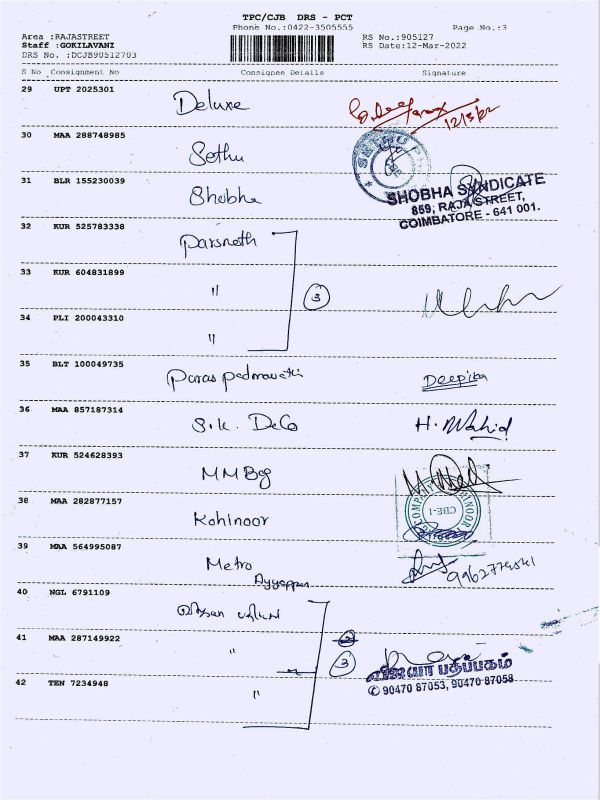 TPC/CJB DRS - PCT
Phone No.:0422-3505555
Page No.:3
Area :RAJASTREET
Staff :GOKILAVANI
DRS No. :DCJB90512703
RS No.:905127
RS Date:12-Mar-2022
S No Consignment No Consignee Details Signature
29 UPT 2025301 Deluxe
12/3/22
30 MAA 288748985 Sethu
SETHU
31 BLR 155230039 Shobha
SHOBHA SYNDICATE
859, RAJA STREET,
COIMBATORE - 641 001.
32 KUR 525783338 Parsneth
33 KUR 604831899 "
3
34 PLI 200043310 "
35 BLT 100049735 Paras Padmavathi Deepika
36 MAA 857187314 S.K. DeCo H. Wahid
37 KUR 524628393 MM Bag
38 MAA 282877157 Kohinoor
COMPANY
CBE-1
39 MAA 564995087 Metro
Ayyappan
40 NGL 6791109
41 MAA 287149922 "
3
விஜயா பதிப்பகம்
42 TEN 7234948 "
✆ 90470 87053, 90470 87058